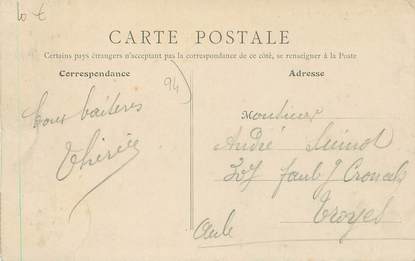 10 €
CARTE POSTALE
Certains pays étrangers n'acceptant pas la correspondance de ce côté, se renseigner à la Poste
Correspondance
Adresse
94
Tous baisers
Thérèse
Monsieur
André
faub g Croncels
Troyes
Aube